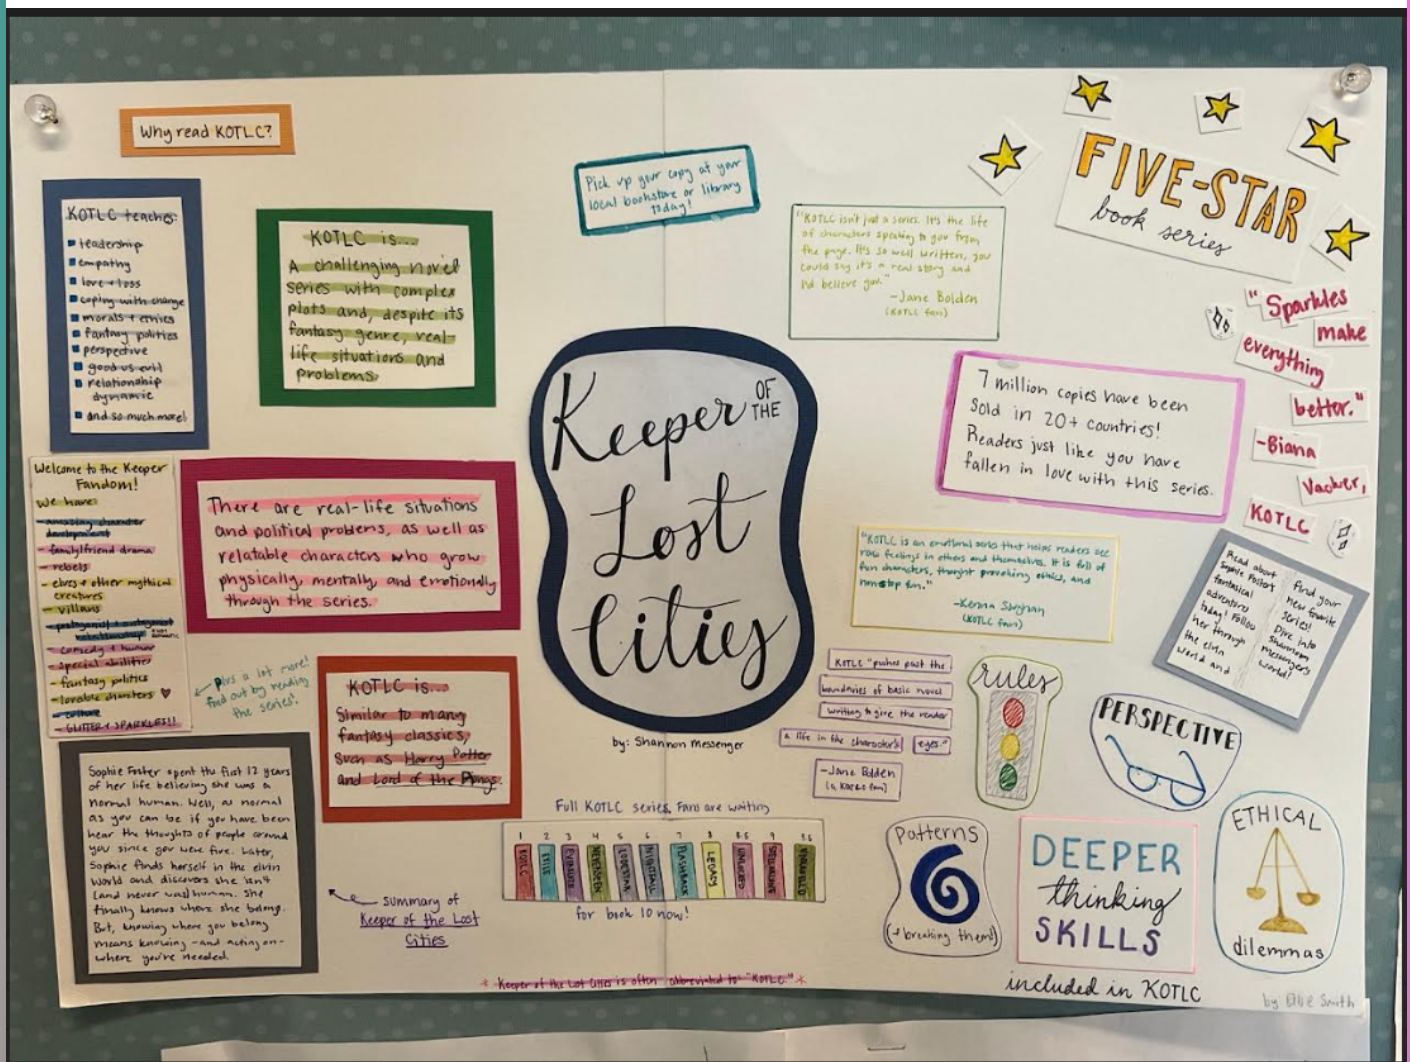 Why read KOTLC?
KOTLC teaches:
leadership
empathy
love + loss
coping with change
morals + ethics
fantasy politics
perspective
good vs evil
relationship
dynamic
and so much more!
KOTLC is...
A challenging novel
series with complex
plots and, despite its
fantasy genre, real-
life situations and
problems.
Welcome to the Keeper
Fandom!
We have:
- amazing character
development
- family/friend drama
- rebels
- elves + other mythical
creatures
- villans
- protagonist + antagonist
relationship
- comedy + humor
- special abilities
- fantasy politics
- lovable charaters
- culture
- GLITTER + SPARKLES!!
Plus a lot more!
find out by reading
the series!
There are real-life situations
and political problems, as well as
relatable characters who grow
physically, mentally, and emotionally
through the series.
KOTLC is...
Similar to many
fantasy classics,
such as Harry Potter
and Lord of the Rings.
Sophie Foster spent the first 12 years
of her life believing she was a
normal human. Well, as normal
as you can be if you have been
hear the thoughts of people around
you since you were five. Later,
Sophie finds herself in the elvin
world and discovers she isn't
(and never was) human. She
finally knows where she belong.
But, knowing where you belong
means knowing -and acting on-
where you're needed.
summary of
Keeper of the Lost
Cities
Pick up your copy at your
local bookstore or library
today!
Keeper OF
THE
Lost
Cities
by: Shannon Messenger
Full KOTLC series. Fans are waiting
1 2 3 4 5 6 7 8 8.5 9 9.5
KOTLC
EXILE
EVERBLAZE
NEVERSEEN
LODESTAR
NIGHTFALL
FLASHBACK
LEGACY
UNLOCKED
STELLARLUNE
UNRAVELED
for book 10 now!
* Keeper of the Lost Cities is often abbreviated to "KOTLC." *
"KOTLC isn't just a series. It's the life
of characters speaking to you from
the page. It's so well written, you
could say it's a real story and
I'd believe you."
-Jane Bolden
(KOTLC fan)
FIVE-STAR
book series
"Sparkles
make
everything
better."
-Biana
Vacker,
KOTLC
7 million copies have been
sold in 20+ countries!
Readers just like you have
fallen in love with this series.
"KOTLC is an emotional series that helps readers see
raw feelings in others and themselves. It is full of
fun characters, thought provoking ethics, and
nonstop fun."
(KOTLC fan)
Read about
Sophie Foster's
fantasical
adventures
today! Follow
her through
the elvin
world and
Find your
new favorite
series!
Dive into
Shannon
messenger's
world!
KOTLC "pushes past the
boundaries of basic novel
writing to give the reader
a life in the character's eyes."
-Jane Bolden
(a KOTLC fan)
rules
PERSPECTIVE
Patterns
(+ breaking them!)
DEEPER
thinking
SKILLS
ETHICAL
dilemmas
included in KOTLC
by Ellie Smith